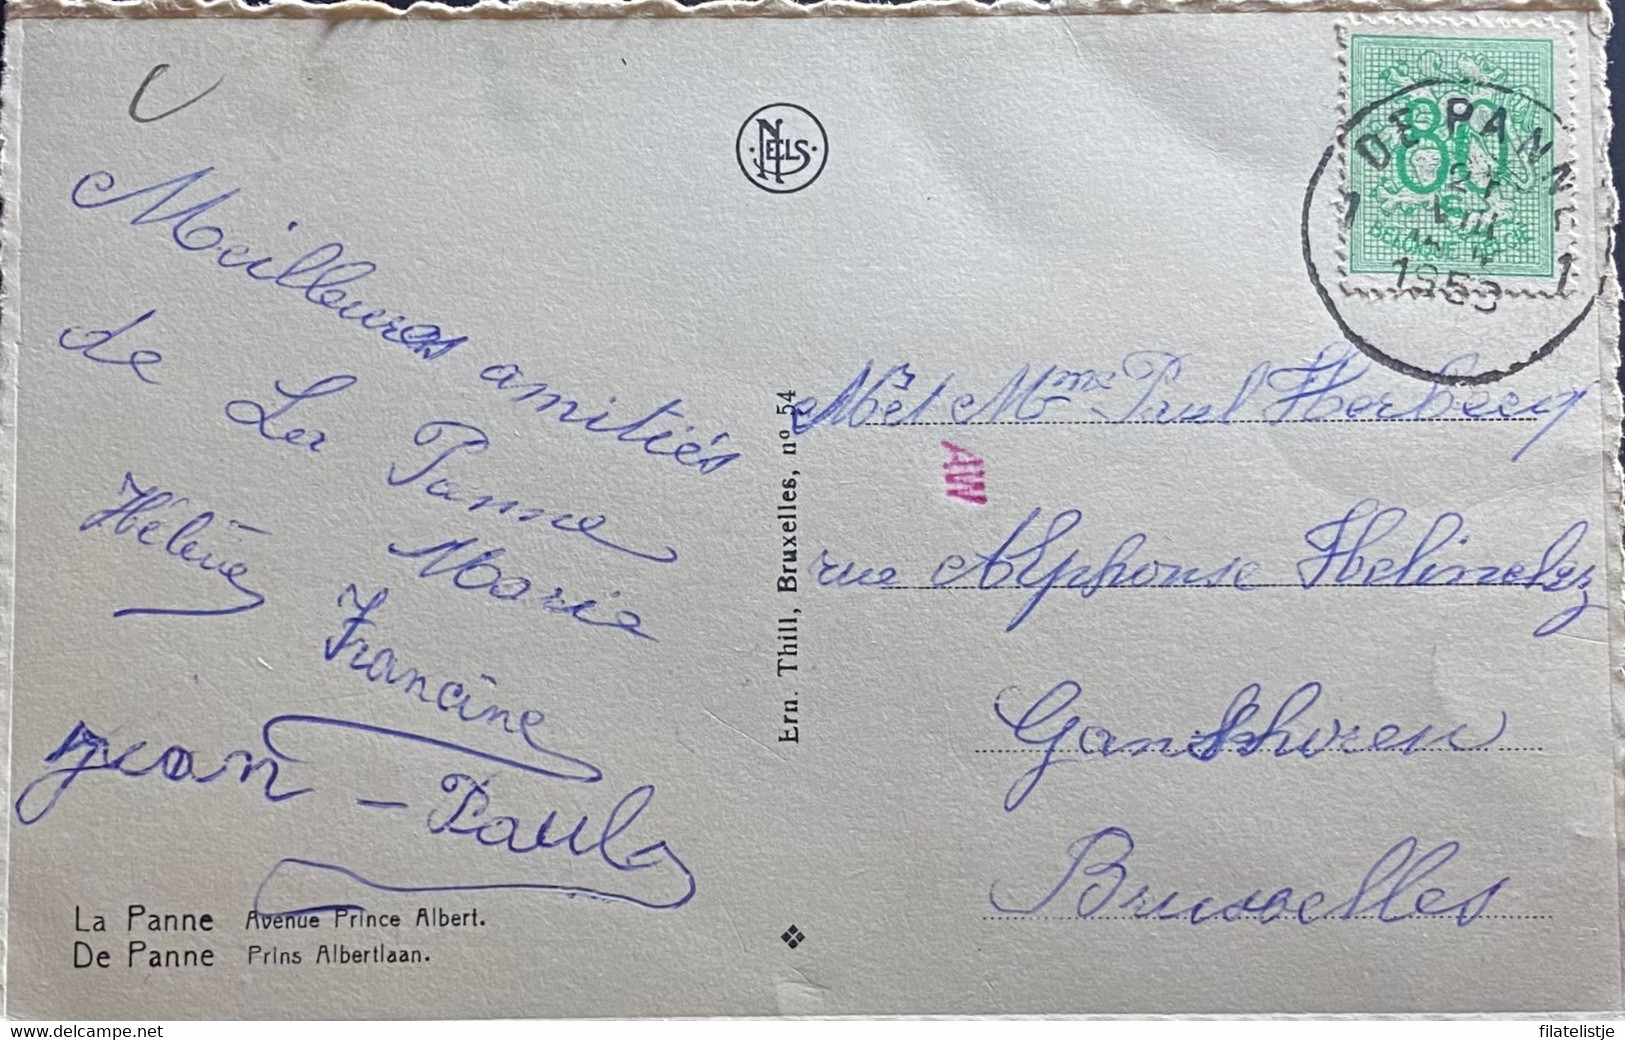 NELS
Meilleures amitiés
de La Panne
Hélène
Marie
Francine
Jean - Paul
La Panne Avenue Prince Albert.
De Panne Prins Albertlaan.
Ern. Thill, Bruxelles, nº 54
80
BELGIQUE BELGIE
DE PANNE
1 1
VIII
1953
Mr et Mme Paul Herbecq
AW
rue Alphonse
Ganshoren
Bruxelles
filatelistje
www.delcampe.net